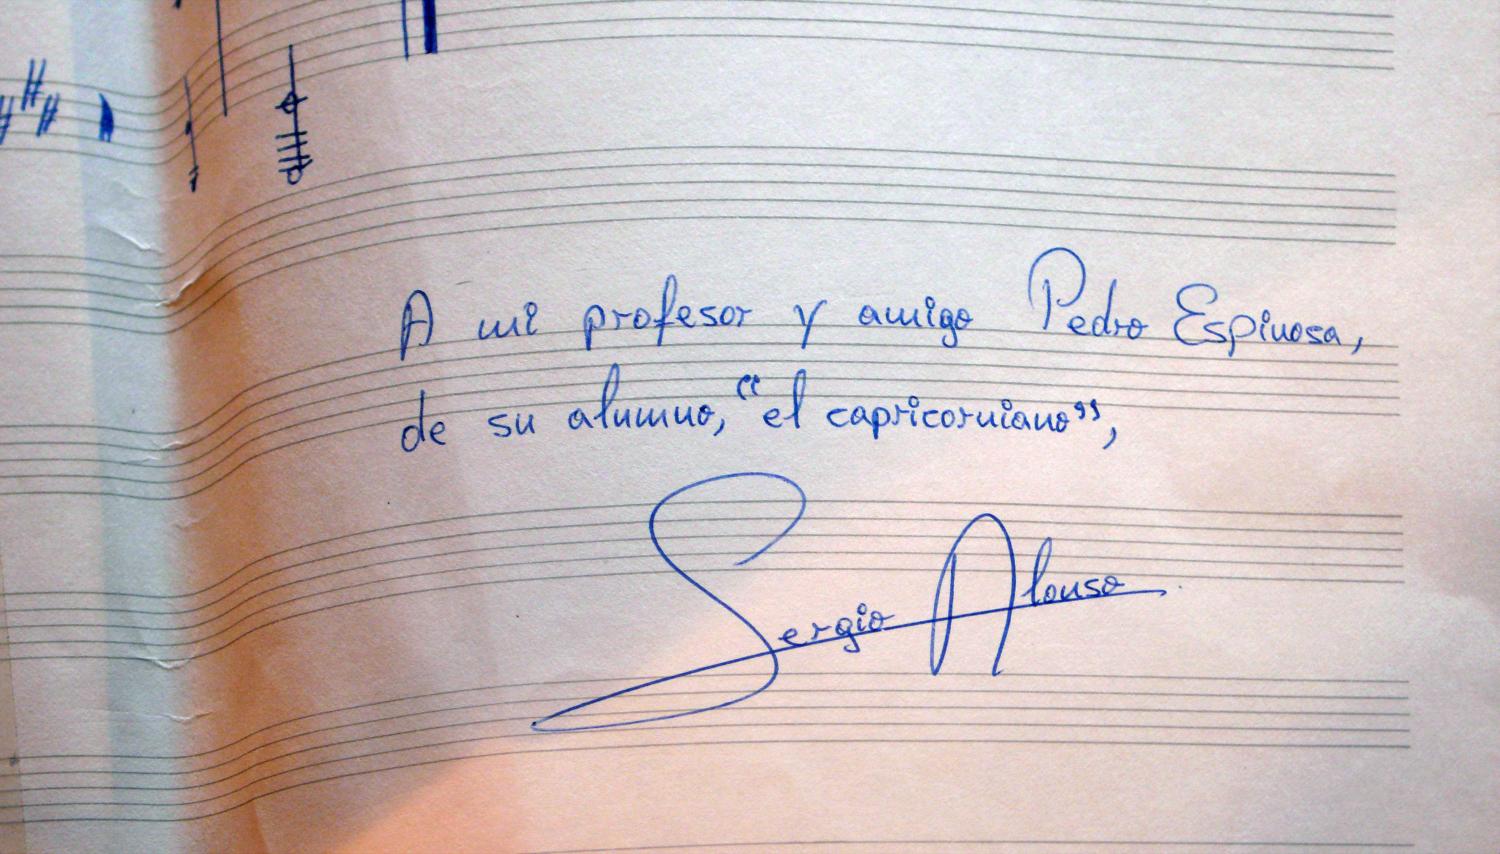 A mi profesor y amigo Pedro Espinosa,
de su alumno, “el capricorniano”,
Sergio Alonso